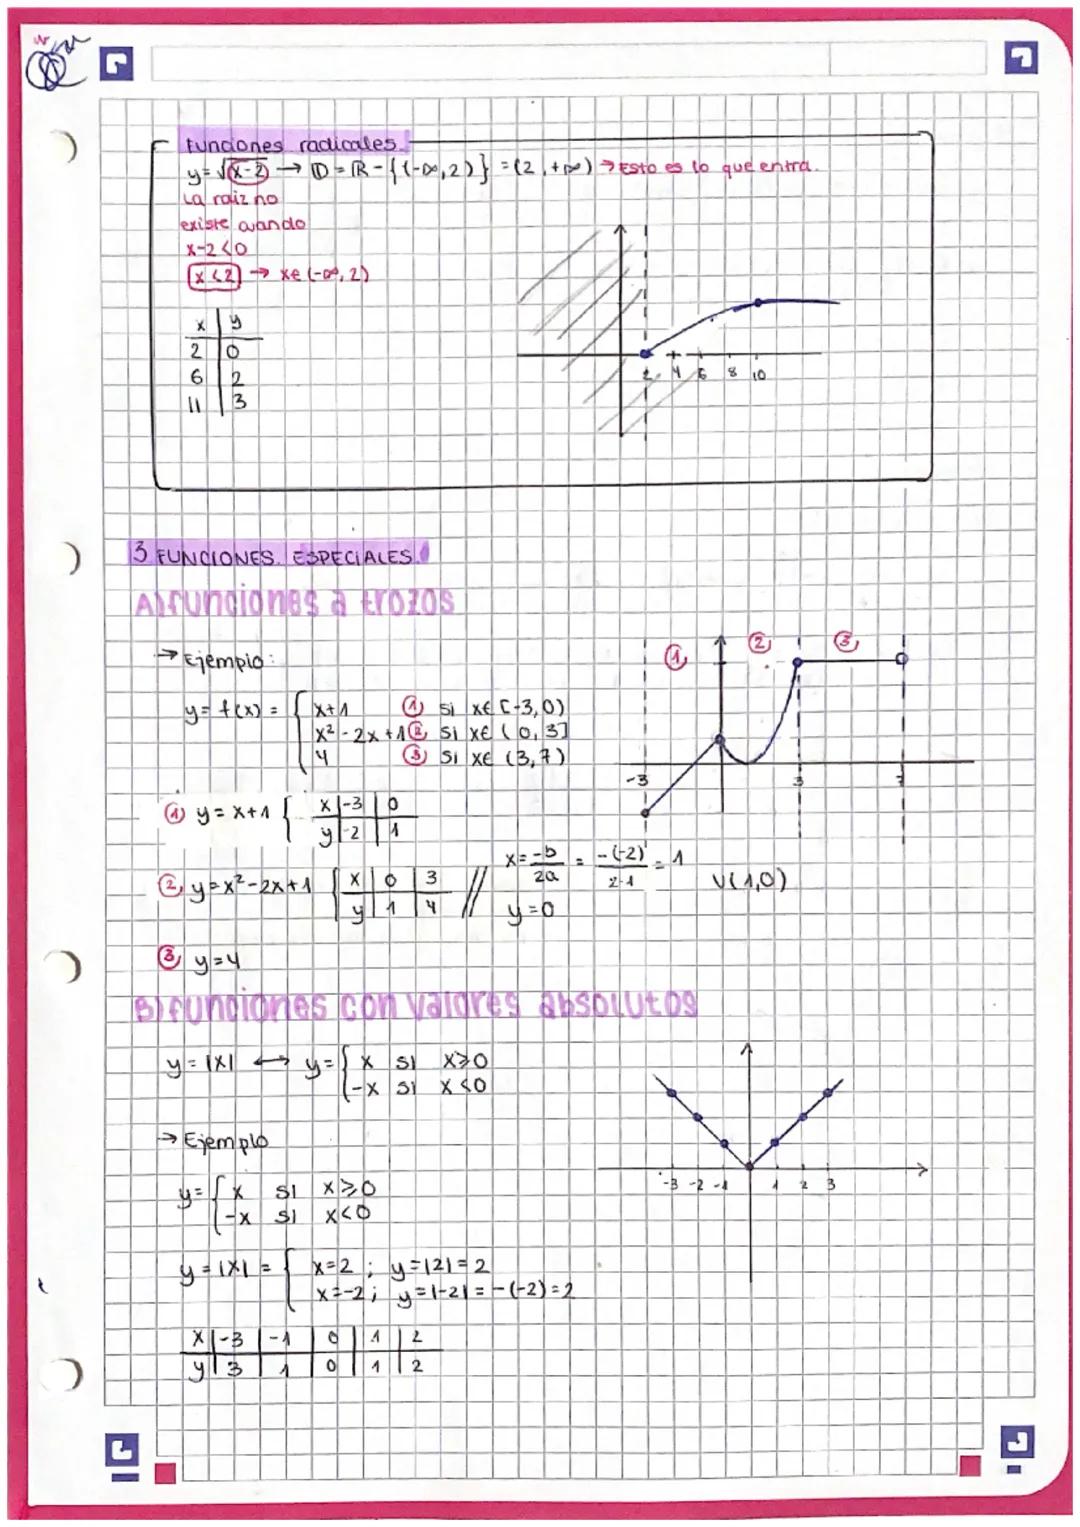 funciones radicales.
y=√x-2 → D=ℝ-{(-∞,2)} =(2,+∞) → Esto es lo que entra.
La raíz no
existe cuando
x-2<0
x<2 → x∈(-∞,2)
x | y
2 | 0
6 | 2
11 | 3
2 4 6 8 10
3 FUNCIONES ESPECIALES.
A) funciones a trozos
→ Ejemplo:
① ② ③
y= f(x) = { x+1 ① si x∈[-3,0)
x²-2x+1 ② si x∈(0,3]
4 ③ si x∈(3,7)
-3 3 7
① y=x+1 { x | -3 | 0
y | -2 | 1
② y=x²-2x+1 { x | 0 | 3 // x=-b/2a = -(-2)/2·1 = 1 V(1,0)
y | 1 | 4 y=0
③ y=4
B) funciones con valores absolutos
y=|x| ↔ y={ x si x≥0
-x si x<0
→ Ejemplo
-3 -2 -1 1 2 3
y={ x si x≥0
-x si x<0
y=|x|= { x=2; y=|2|=2
x=-2; y=|-2|=-(-2)=2
x | -3 | -1 | 0 | 1 | 2
y | 3 | 1 | 0 | 1 | 2